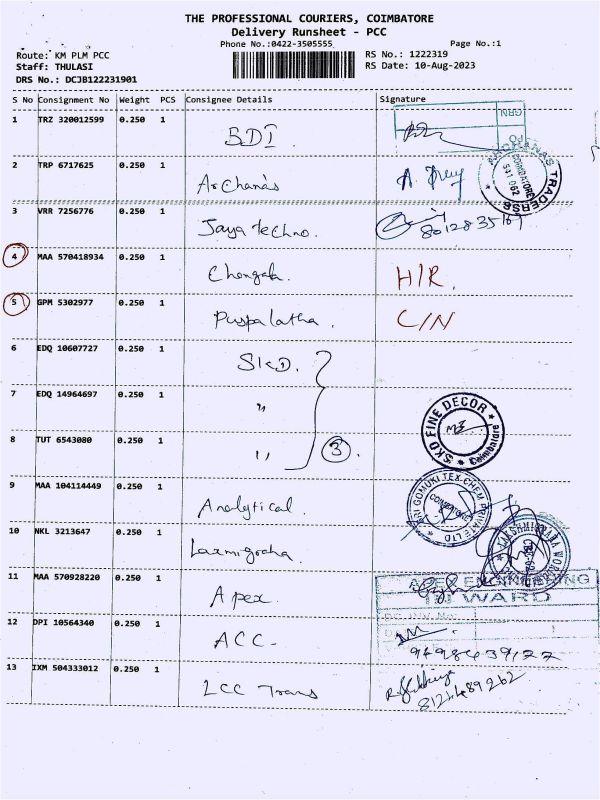 THE PROFESSIONAL COURIERS, COIMBATORE
Delivery Runsheet - PCC
Phone No.:0422-3505555
Page No.:1
Route: KM PLM PCC
Staff: THULASI
DRS No.: DCJB122231901
RS No.: 1222319
RS Date: 10-Aug-2023
S No Consignment No Weight PCS Consignee Details Signature
1 TRZ 320012599 0.250 1 BDI.
GRN
PO
2 TRP 6717625 0.250 1 Archana's
ARCHANAS TRADERS
COIMBATORE
641 062
3 VRR 7256776 0.250 1 Jaya Techno.
4 MAA 570418934 0.250 1 H/R.
5 GPM 5302977 0.250 1 Puspalatha. C/N
6 EDQ 10607727 0.250 1 SKD.
7 EDQ 14964697 0.250 1 "
8 TUT 6543080 0.250 1 " 3
SKD FINE DECOR
Coimbatore
9 MAA 104114449 0.250 1 Analytical.
SRI GOMUKI TEX-CHEM PRIVATE LTD
COIMBATORE
10 NKL 3213647 0.250 1
11 MAA 570928220 0.250 1 Apex
APEX ENGINEERING
INWARD
12 DPI 10564340 0.250 1 ACC-
13 IXM 504333012 0.250 1 LCC Trans